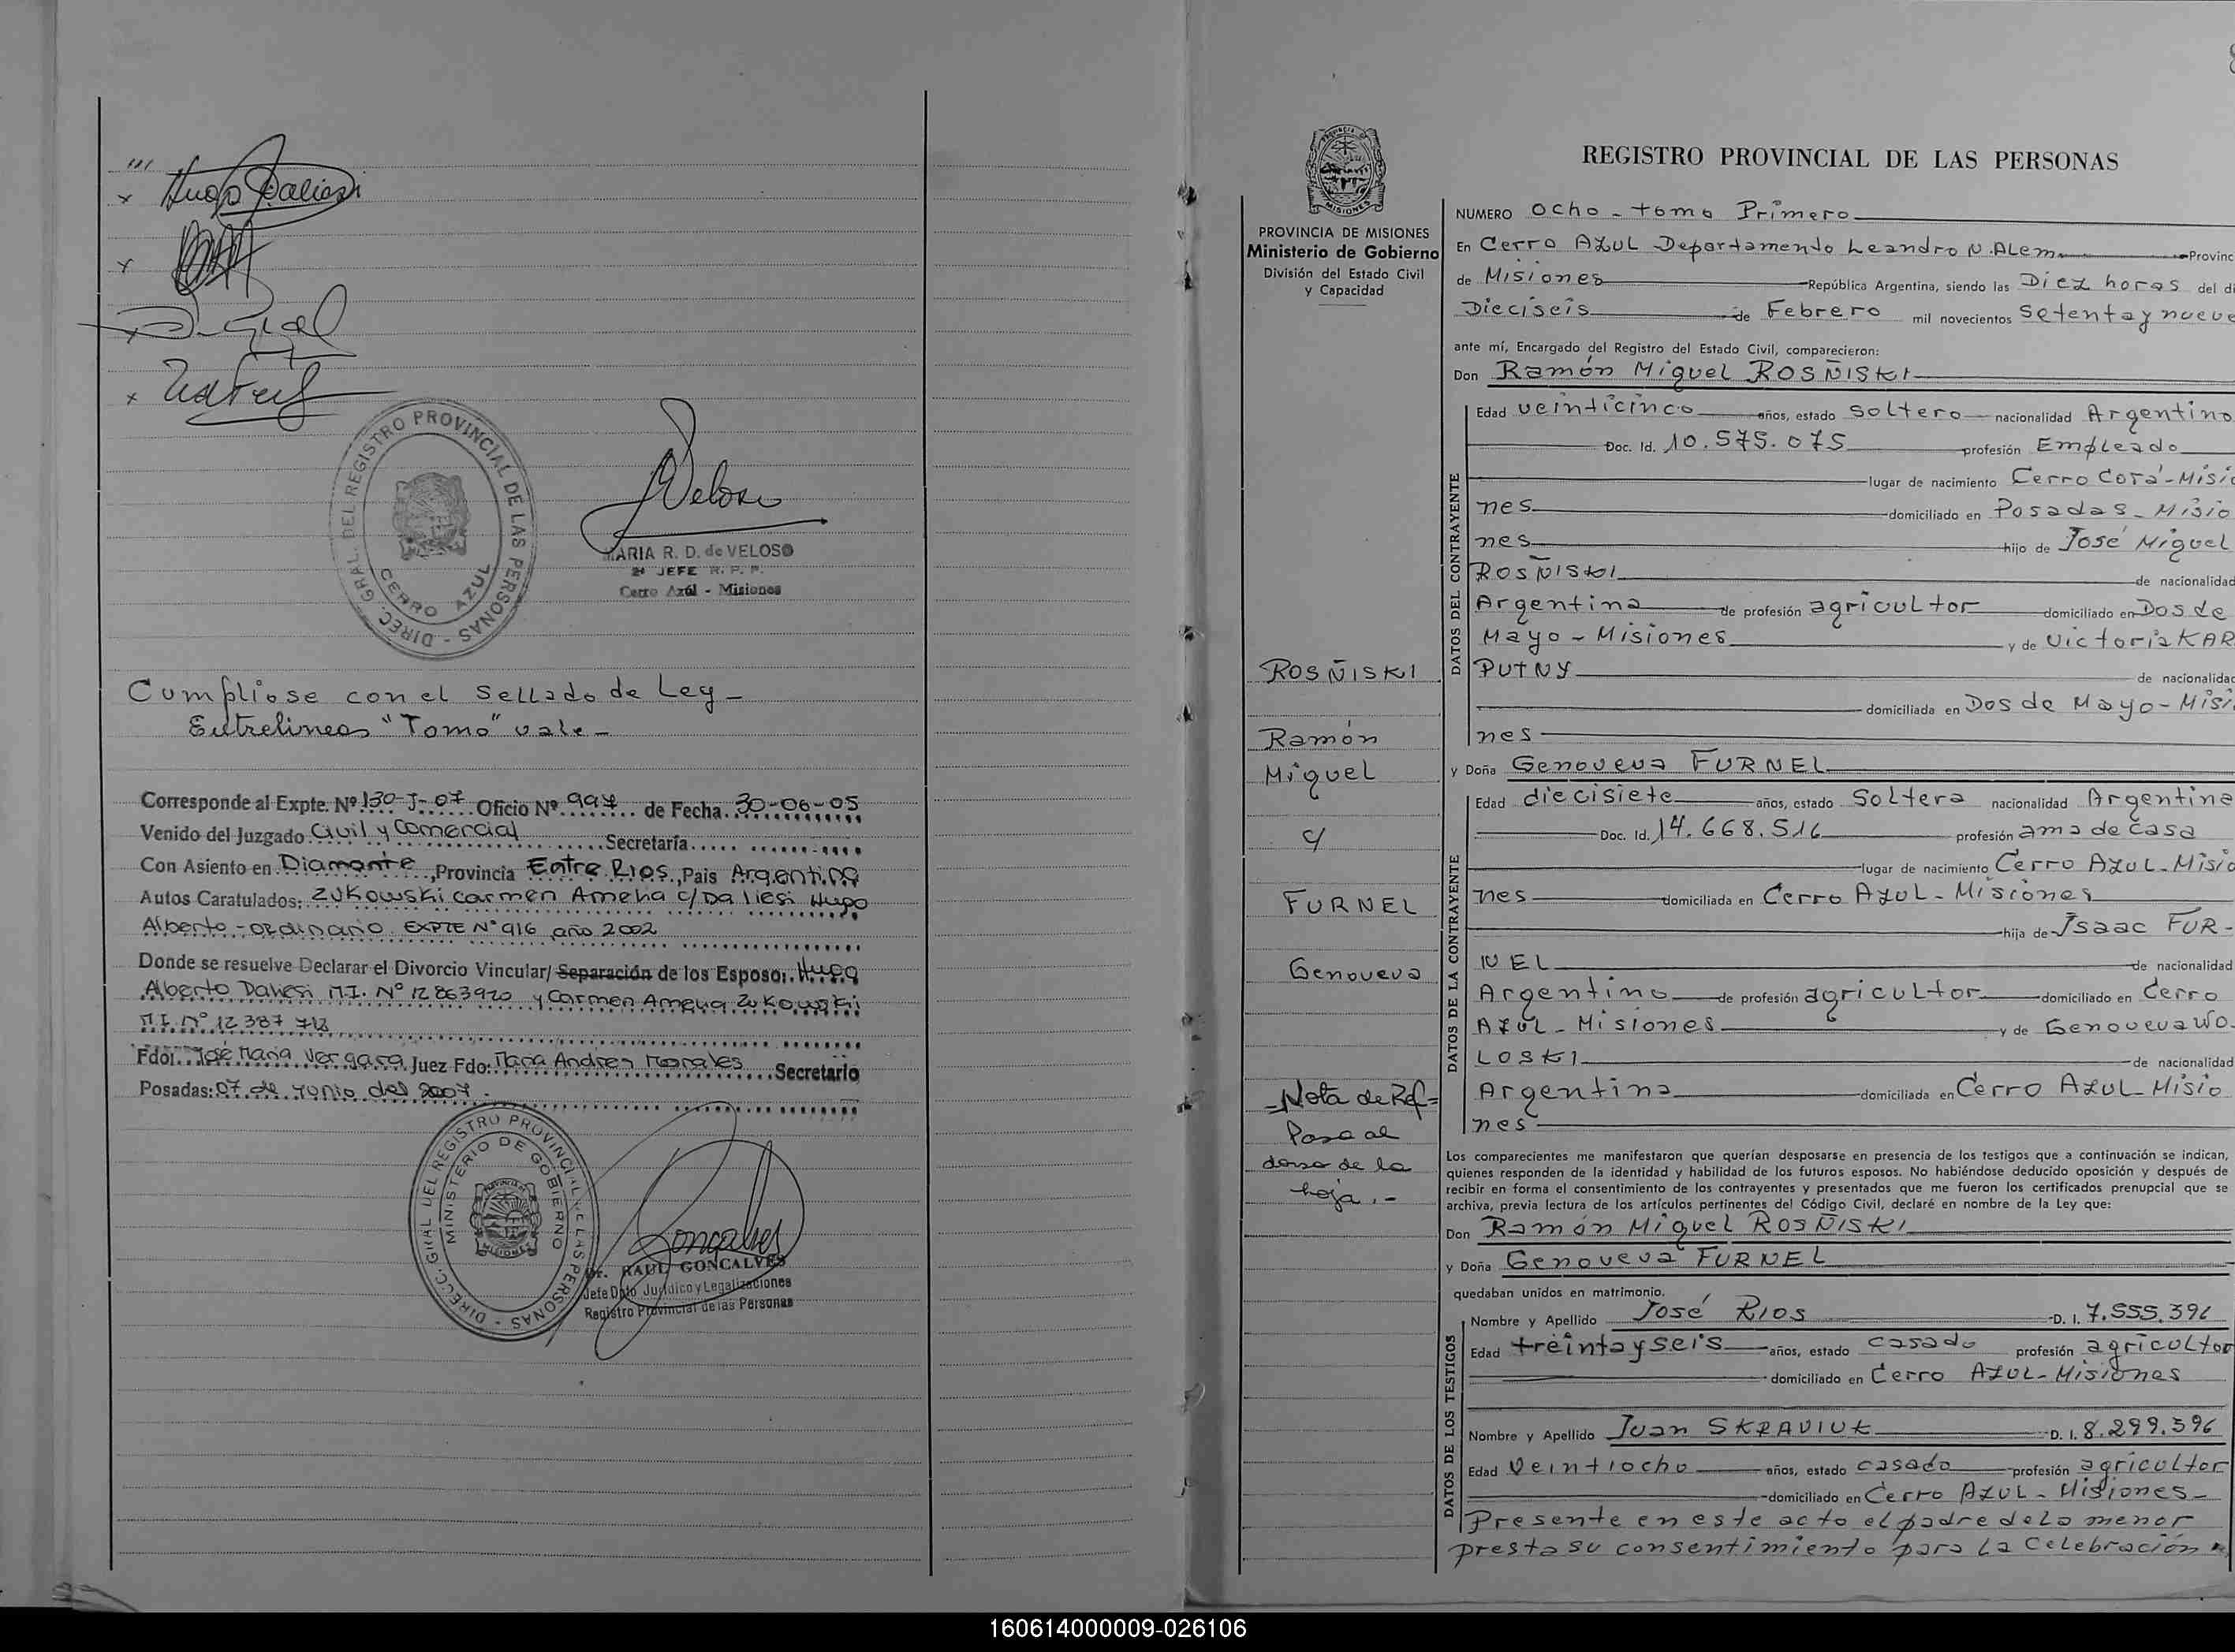 Hugo Daliesi
DIREC. GRAL. DEL REGISTRO PROVINCIAL DE LAS PERSONAS
CERRO AZUL
MARIA R. D. de VELOSO
JEFE R. P. P.
Cerro Azúl - Misiones
Cumplióse con el sellado de Ley -
Entrelineas "Tomo" vale -
Corresponde al Expte. Nº 130-J-07 Oficio Nº 997 de Fecha 30-06-05
Venido del Juzgado Civil y Comercial Secretaría
Con Asiento en Diamante, Provincia Entre Rios, Pais Argentina
Autos Caratulados: Zukowski Carmen Amelia c/ Daliesi Hugo
Alberto - ordinario EXPTE Nº 916 año 2002
Donde se resuelve Declarar el Divorcio Vincular/ Separación de los Esposo: Hugo
Alberto Daliesi M.I. Nº 12863920 y Carmen Amelia Zukowski
M.I. Nº 12 387 718
Fdo: José Maria Vergara Juez Fdo: Maria Andrea Morales Secretario
Posadas: 07 de Junio del 2007.
DIRECC. GRAL DEL REGISTRO PROVINCIAL DE LAS PERSONAS
MINISTERIO DE GOBIERNO
MISIONES
Dr. RAUL GONCALVES
Jefe Dpto Jurídico y Legalizaciones
Registro Provincial de las Personas
PROVINCIA DE MISIONES
Ministerio de Gobierno
División del Estado Civil
y Capacidad
ROSÑISKI
Ramón
Miguel
c/
FURNEL
Genoveva
=Nota de Ref=
Pasa al
dorso de la
hoja.-
REGISTRO PROVINCIAL DE LAS PERSONAS
NUMERO Ocho - tomo Primero
En Cerro AZUL Departamento Leandro N. ALem Provinc
de Misiones República Argentina, siendo las Diez horas del di
Dieciseis de Febrero mil novecientos setenta y nueve
ante mí, Encargado del Registro del Estado Civil, comparecieron:
Don Ramón Miguel ROSÑISKI
DATOS DEL CONTRAYENTE
Edad veinticinco años, estado soltero nacionalidad Argentino
Doc. Id. 10.575.075 profesión Empleado
lugar de nacimiento Cerro Corá - Misio
nes domiciliado en Posadas - Misio
nes hijo de José Miguel
ROSÑISKI de nacionalidad
Argentina de profesión agricultor domiciliado en Dos de
Mayo - Misiones y de Victoria KAR
PUTNY de nacionalidad
domiciliada en Dos de Mayo - Misi
nes
y Doña Genoveva FURNEL
DATOS DE LA CONTRAYENTE
Edad diecisiete años, estado Soltera nacionalidad Argentina
Doc. Id. 14.668.516 profesión ama de casa
lugar de nacimiento Cerro AZUL - Misio
nes domiciliada en Cerro AZUL - Misiones
hija de Isaac FUR-
NEL de nacionalidad
Argentino de profesión agricultor domiciliado en Cerro
AZUL - Misiones y de Genoveva WO-
LOSKI de nacionalidad
Argentina domiciliada en Cerro AZUL - Misio
nes
Los comparecientes me manifestaron que querían desposarse en presencia de los testigos que a continuación se indican,
quienes responden de la identidad y habilidad de los futuros esposos. No habiéndose deducido oposición y después de
recibir en forma el consentimiento de los contrayentes y presentados que me fueron los certificados prenupcial que se
archiva, previa lectura de los artículos pertinentes del Código Civil, declaré en nombre de la Ley que:
Don Ramón Miguel ROSÑISKI
y Doña Genoveva FURNEL
quedaban unidos en matrimonio.
DATOS DE LOS TESTIGOS
Nombre y Apellido José RIOS D. I. 7.555.396
Edad treinta y seis años, estado casado profesión agricultor
domiciliado en Cerro AZUL - Misiones
Nombre y Apellido Juan SKRAVIUK D. I. 8.299.396
Edad Veintiocho años, estado casado profesión agricultor
domiciliado en Cerro AZUL - Misiones -
Presente en este acto el padre de la menor
presta su consentimiento para la celebración
160614000009-026106